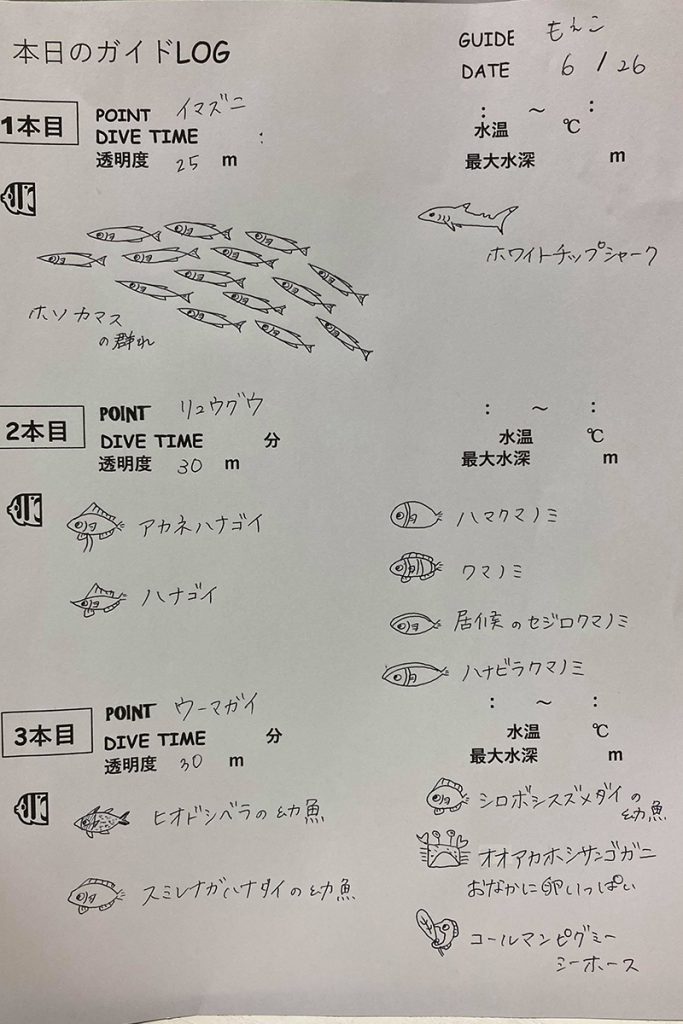 本日のガイドLOG
GUIDE もえこ
DATE 6 / 26
1本目
POINT イマズニ
DIVE TIME :
透明度 25 m
: ～ :
水温 ℃
最大水深 m
ホソカマス
の群れ
ホワイトチップシャーク
2本目
POINT リュウグウ
DIVE TIME 分
透明度 30 m
: ～ :
水温 ℃
最大水深 m
アカネハナゴイ
ハナゴイ
ハマクマノミ
クマノミ
居候のセジロクマノミ
ハナビラクマノミ
3本目
POINT ウーマガイ
DIVE TIME 分
透明度 30 m
: ～ :
水温 ℃
最大水深 m
ヒオドシベラの幼魚
スミレナガハナダイの幼魚
シロボシスズメダイの
幼魚
オオアカホシサンゴガニ
おなかに卵いっぱい
コールマンピグミー
シーホース